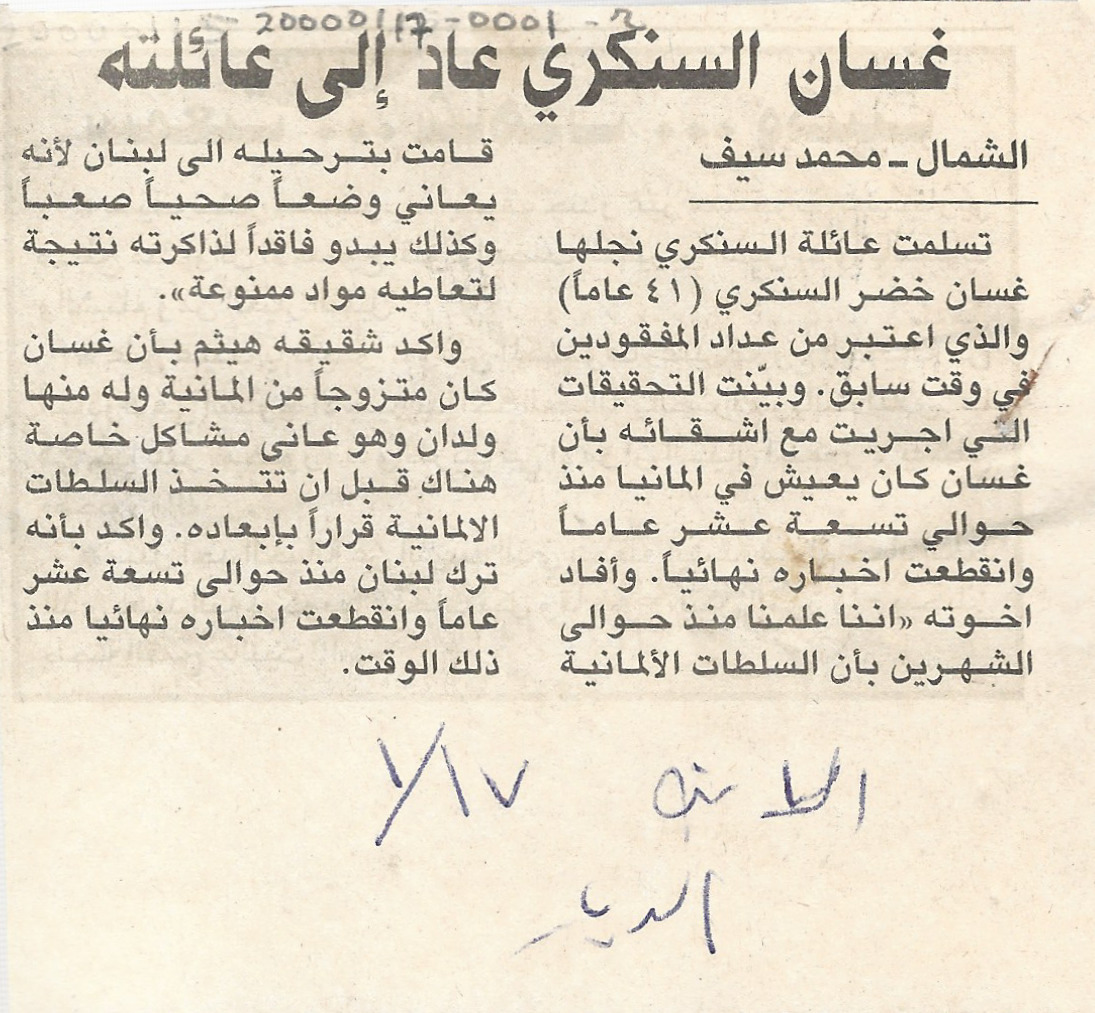 20000117-0001-2
غسان السنكري عاد إلى عائلته
الشمال ـ محمد سيف
تسلمت عائلة السنكري نجلها
غسان خضر السنكري (٤١ عاماً)
والذي اعتبر من عداد المفقودين
في وقت سابق. وبيّنت التحقيقات
التي اجريت مع اشقائه بأن
غسان كان يعيش في المانيا منذ
حوالي تسعة عشر عاماً
وانقطعت اخباره نهائياً. وأفاد
اخوته «اننا علمنا منذ حوالى
الشهرين بأن السلطات الألمانية
قامت بترحيله الى لبنان لأنه
يعاني وضعاً صحياً صعباً
وكذلك يبدو فاقداً لذاكرته نتيجة
لتعاطيه مواد ممنوعة».
واكد شقيقه هيثم بأن غسان
كان متزوجاً من المانية وله منها
ولدان وهو عانى مشاكل خاصة
هناك قبل ان تتخذ السلطات
الالمانية قراراً بإبعاده. واكد بأنه
ترك لبنان منذ حوالى تسعة عشر
عاماً وانقطعت اخباره نهائيا منذ
ذلك الوقت.
١٧/١
الديار